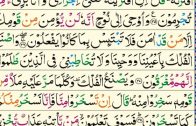 تُجْرِمُونَ وَأُوحِيَ إِلَىٰ نُوحٍ أَنَّهُ لَن يُؤْمِنَ مِن قَوْمِ
إِلَّا مَن قَدْ ءَامَنَ فَلَا تَبْتَئِسْ بِمَا كَانُوا يَفْعَلُونَ
ٱلْفُلْكَ بِأَعْيُنِنَا وَوَحْيِنَا وَلَا تُخَٰطِبْنِي فِي ٱلَّذِينَ
إِنَّهُم مُّغْرَقُونَ وَيَصْنَعُ ٱلْفُلْكَ وَكُلَّمَا مَرَّ عَلَيْهِ مَلَأٌ
قَوْمِهِ سَخِرُوا مِنْهُ قَالَ إِن تَسْخَرُوا مِنَّا فَإِنَّا نَسْخَرُ